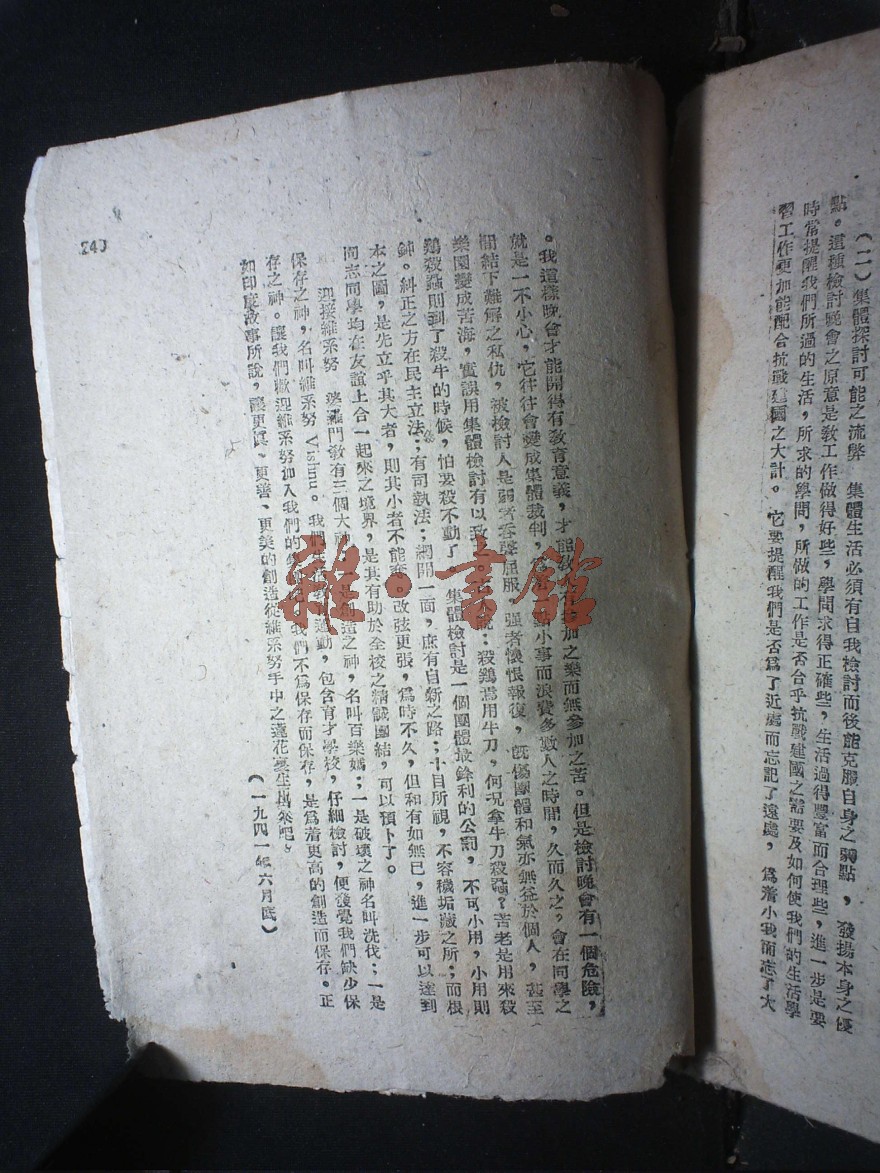 (二)集體探討可能之流弊 集體生活必須有自我檢討而後能克服自身之弱點,發揚本身之優
點。這種檢討晚會之原意是敎工作做得好些,學問求得正確些,生活過得豐富而合理些,進一步是要
時常提醒我們所過的生活,所求的學問,所做的工作是否合乎抗戰建國之需要及如何使我們的生活學
習工作更加能配合抗戰建國之大計。它要提醒我們是否爲了近處而忘記了遠處,爲着小我而忘了大
。我這樣晚會才能開得有敎育意義,才能敎人有參加之樂而無參加之苦。但是檢討晚會有一個危險,
就是一不小心,它往往會變成集體裁判,小事而浪費多數人之時間,久而久之,會在同學之
間結下難解之私仇,被檢討人是弱者吞聲屈服,强者懷恨報復,旣傷團體和氣亦無益於個人,甚至
樂園變成苦海,實誤用集體檢討有以致之。古人說:殺鷄焉用牛刀,何況拿牛刀殺蟲?若老是用來殺
鷄殺蟲則到了殺牛的時候,怕要殺不動了。集體檢討是一個團體最鋒利的公罰,不可小用,小用則
鈍。糾正之方在民主立法;有司執法;網開一面,庶有自新之路;十目所視,不容穢垢藏之所;而根
本之圖,是先立乎其大者,則其小者不能奪。改弦更張,爲時不久,但和有如無已,進一步可以達到
同志同學均在友誼上合一起來之境界,是其有助於全校之精誠團結,可以預卜了。
迎接維系努 婆羅門敎有三個大神,一是創造之神,名叫百樂媽;一是破壞之神名叫洗伐;一是
保存之神,名叫維系努 Vishnu。我們運動,包含育才學校,仔細檢討,便發覺我們缺少保
存之神。讓我們歡迎維系努加入我們的我們不爲保存而保存,是爲着更高的創造而保存。正
如印度故事所說,讓更眞、更善、更美的創造從維系努手中之蓮花裏生出來吧。
(一九四一年六月底)
243
雜·書館